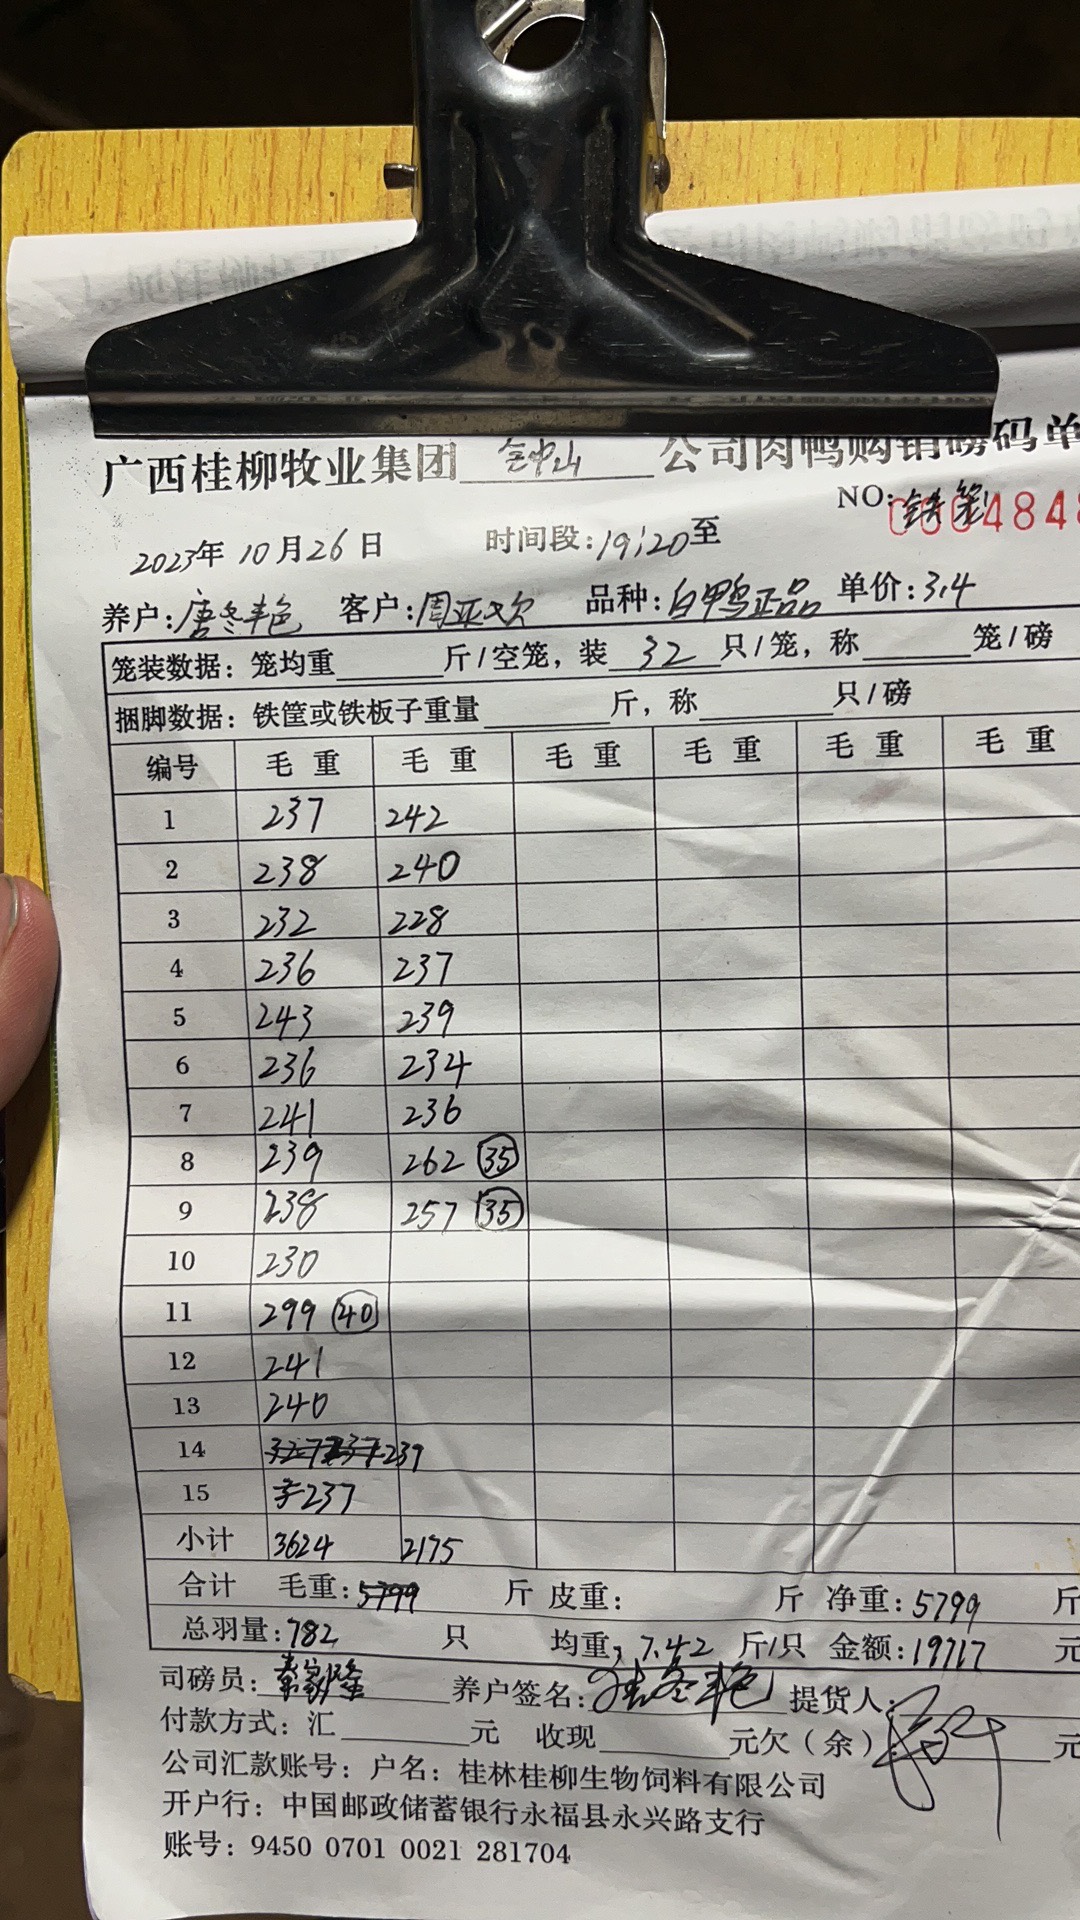 广西桂柳牧业集团 钟山 公司肉鸭购销磅码单
NO: 铁笼 000484
2023年 10月26日 时间段:19:20至
养户:唐冬艳 客户:周亚欢 品种:白鸭正品 单价:3.4
笼装数据: 笼均重 斤/空笼, 装 32 只/笼, 称 笼/磅
捆脚数据: 铁筐或铁板子重量 斤, 称 只/磅
编号 毛重 毛重 毛重 毛重 毛重 毛重
1 237 242
2 238 240
3 232 228
4 236 237
5 243 239
6 236 234
7 241 236
8 239 262 35
9 238 257 35
10 230
11 299 40
12 241
13 240
14 327 237 237
15 237
小计 3624 2175
合计 毛重:5799 斤 皮重: 斤 净重:5799 斤
总羽量:782 只 均重:7.42 斤/只 金额:19717 元
司磅员: 养户签名: 提货人:
付款方式: 汇 元 收现 元欠(余) 元
公司汇款账号: 户名: 桂林桂柳生物饲料有限公司
开户行: 中国邮政储蓄银行永福县永兴路支行
账号: 9450 0701 0021 281704